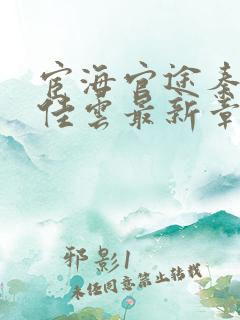 宦海官途秦
佳雲最新章
邪影1
未经同意禁止转载